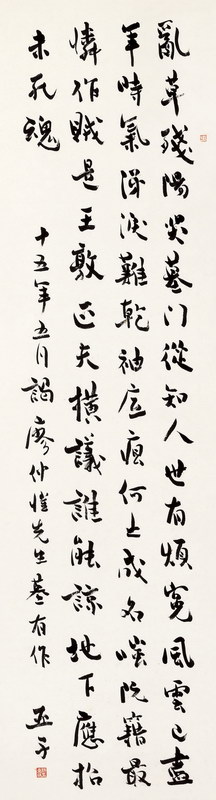 亂草殘陽哭墓門從知人世有煩冤風雲已盡
年時氣涕淚難乾袖底痕何止成名嗤阮籍最
憐作賊是王敦疋夫橫議誰能諒地下應招
未死魂
十五年五月謁廖仲愷先生墓有作 亞子